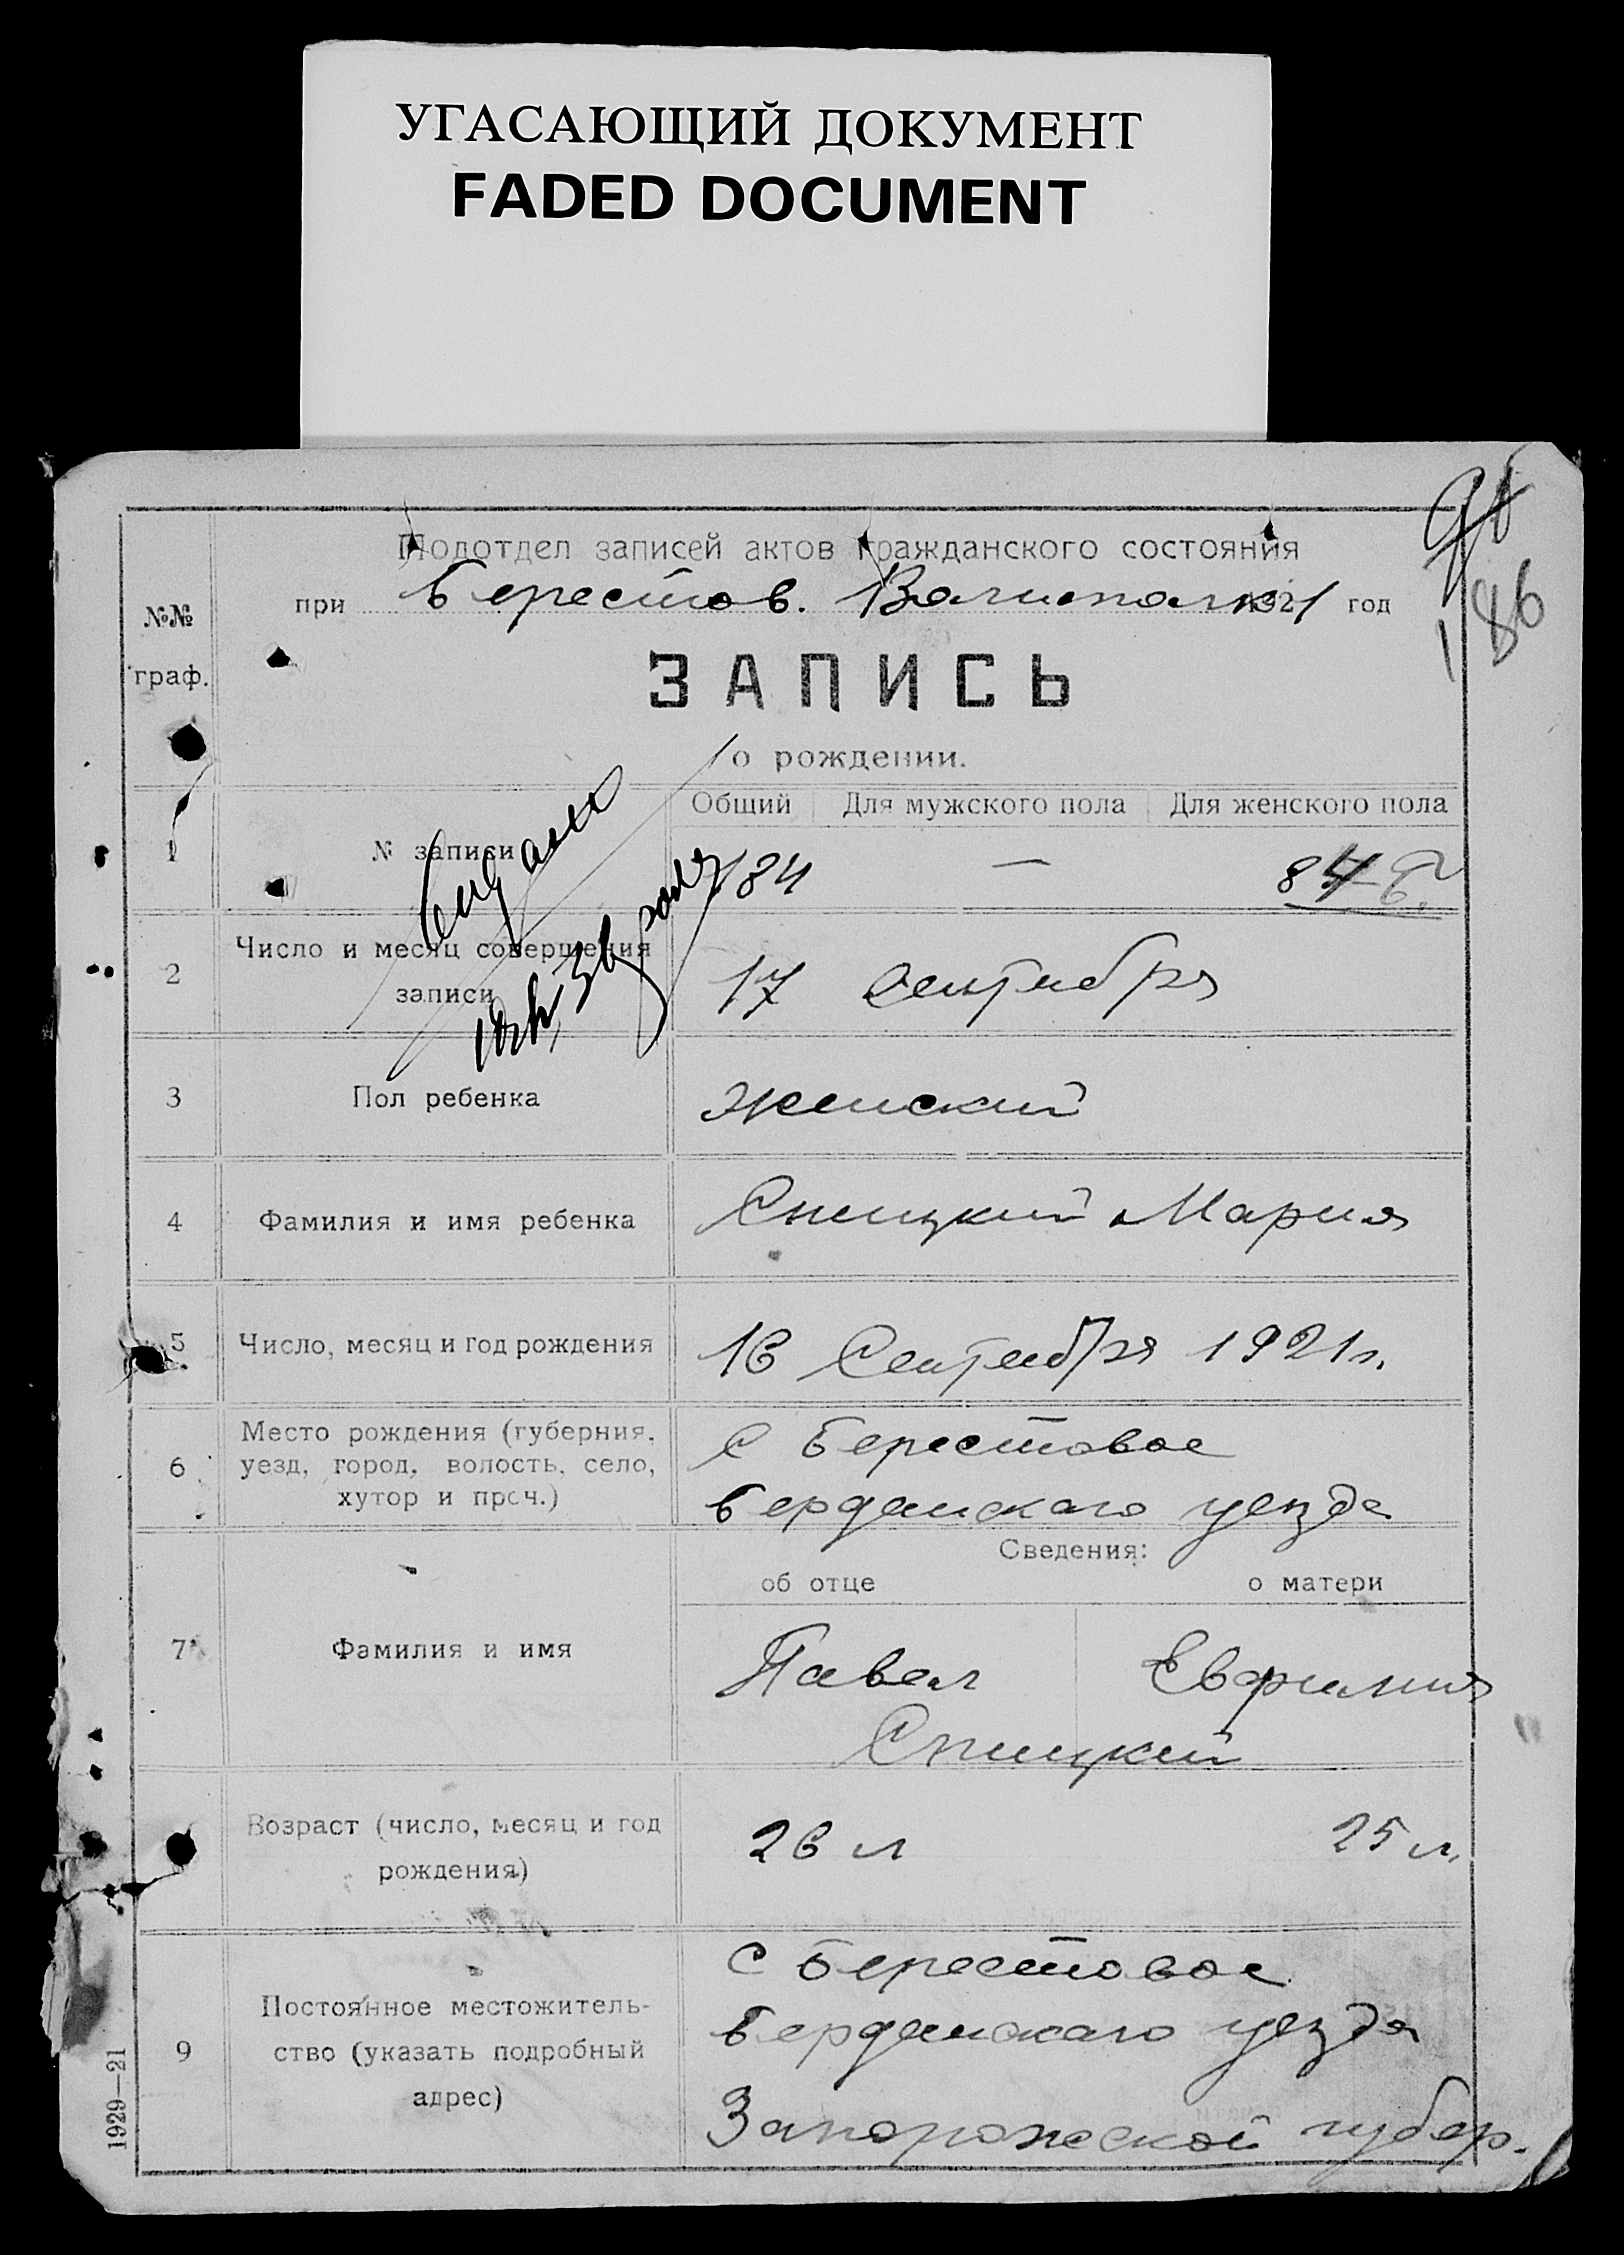 УГАСАЮЩИЙ ДОКУМЕНТ
FADED DOCUMENT
Подотдел записей актов гражданского состояния
при Берестов. Волисполк. 1921 год
186
№№
граф.
ЗАПИСЬ
о рождении.
Общий Для мужского пола Для женского пола
1 № записи 184 — 84
2 Число и месяц совершения
записи
17 Сентября
3 Пол ребенка женский
4 Фамилия и имя ребенка Снецкий Мария
5 Число, месяц и год рождения 16 Сентября 1921 г.
6 Место рождения (губерния,
уезд, город, волость, село,
хутор и проч.)
С Берестовое
Бердянскаго уезда
Сведения:
об отце о матери
7 Фамилия и имя Павел Евфимия
Снецкий
Возраст (число, месяц и год
рождения)
26 л 25 л.
9 Постоянное местожитель-
ство (указать подробный
адрес)
С Берестовое
Бердянскаго уезда
Запорожской губер.
1929—21